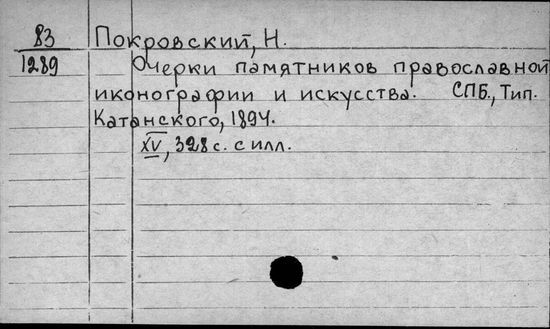 83 Покровский, Н.
1289 Очерки памятников православной
иконографии и искусства. СПБ., Тип.
Катанского, 1894.
XV, 328 с. с илл.